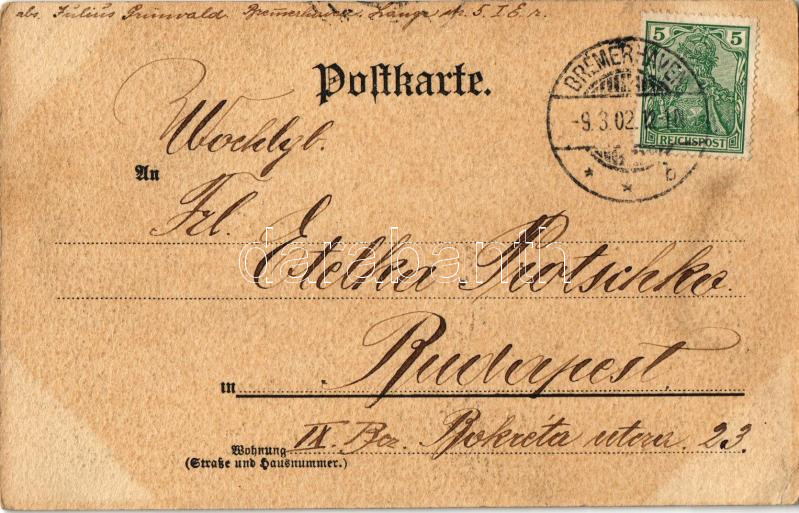 abs. Julius Grünwald Bremerhaven, Lange str. 5. I E. r.
5 5
REICHSPOST
BREMERHAVEN
-9.3.02. 12-1N.
* * b
Postkarte.
Wochlgb.
An
Frl. Etelka Protschko.
in Budapest,
IX. Bez. Bokréta utcza. 23.
Wohnung
(Straße und Hausnummer.)
darabanth